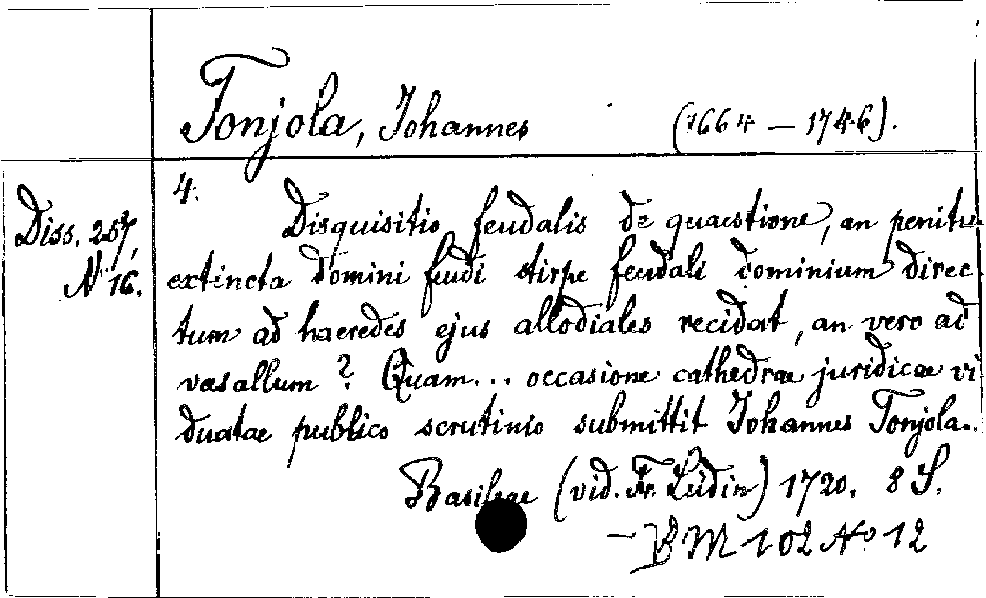 Tonjola, Johannes (1664 – 1746).
4.
Diss. 257,
N 16.
Disquisitio feudalis de quaestione, an penitus
extincta domini feudi stirpe feudali dominium direc-
tum ad haeredes ejus allodiales recidat, an vero ad
vasallum? Quam... occasione cathedrae juridicae vi
duatae publico scrutinio submittit Johannes Tonjola.
Basileae (vid. Fr. Lüdin) 1720. 8 S.
– BM 102 No 12